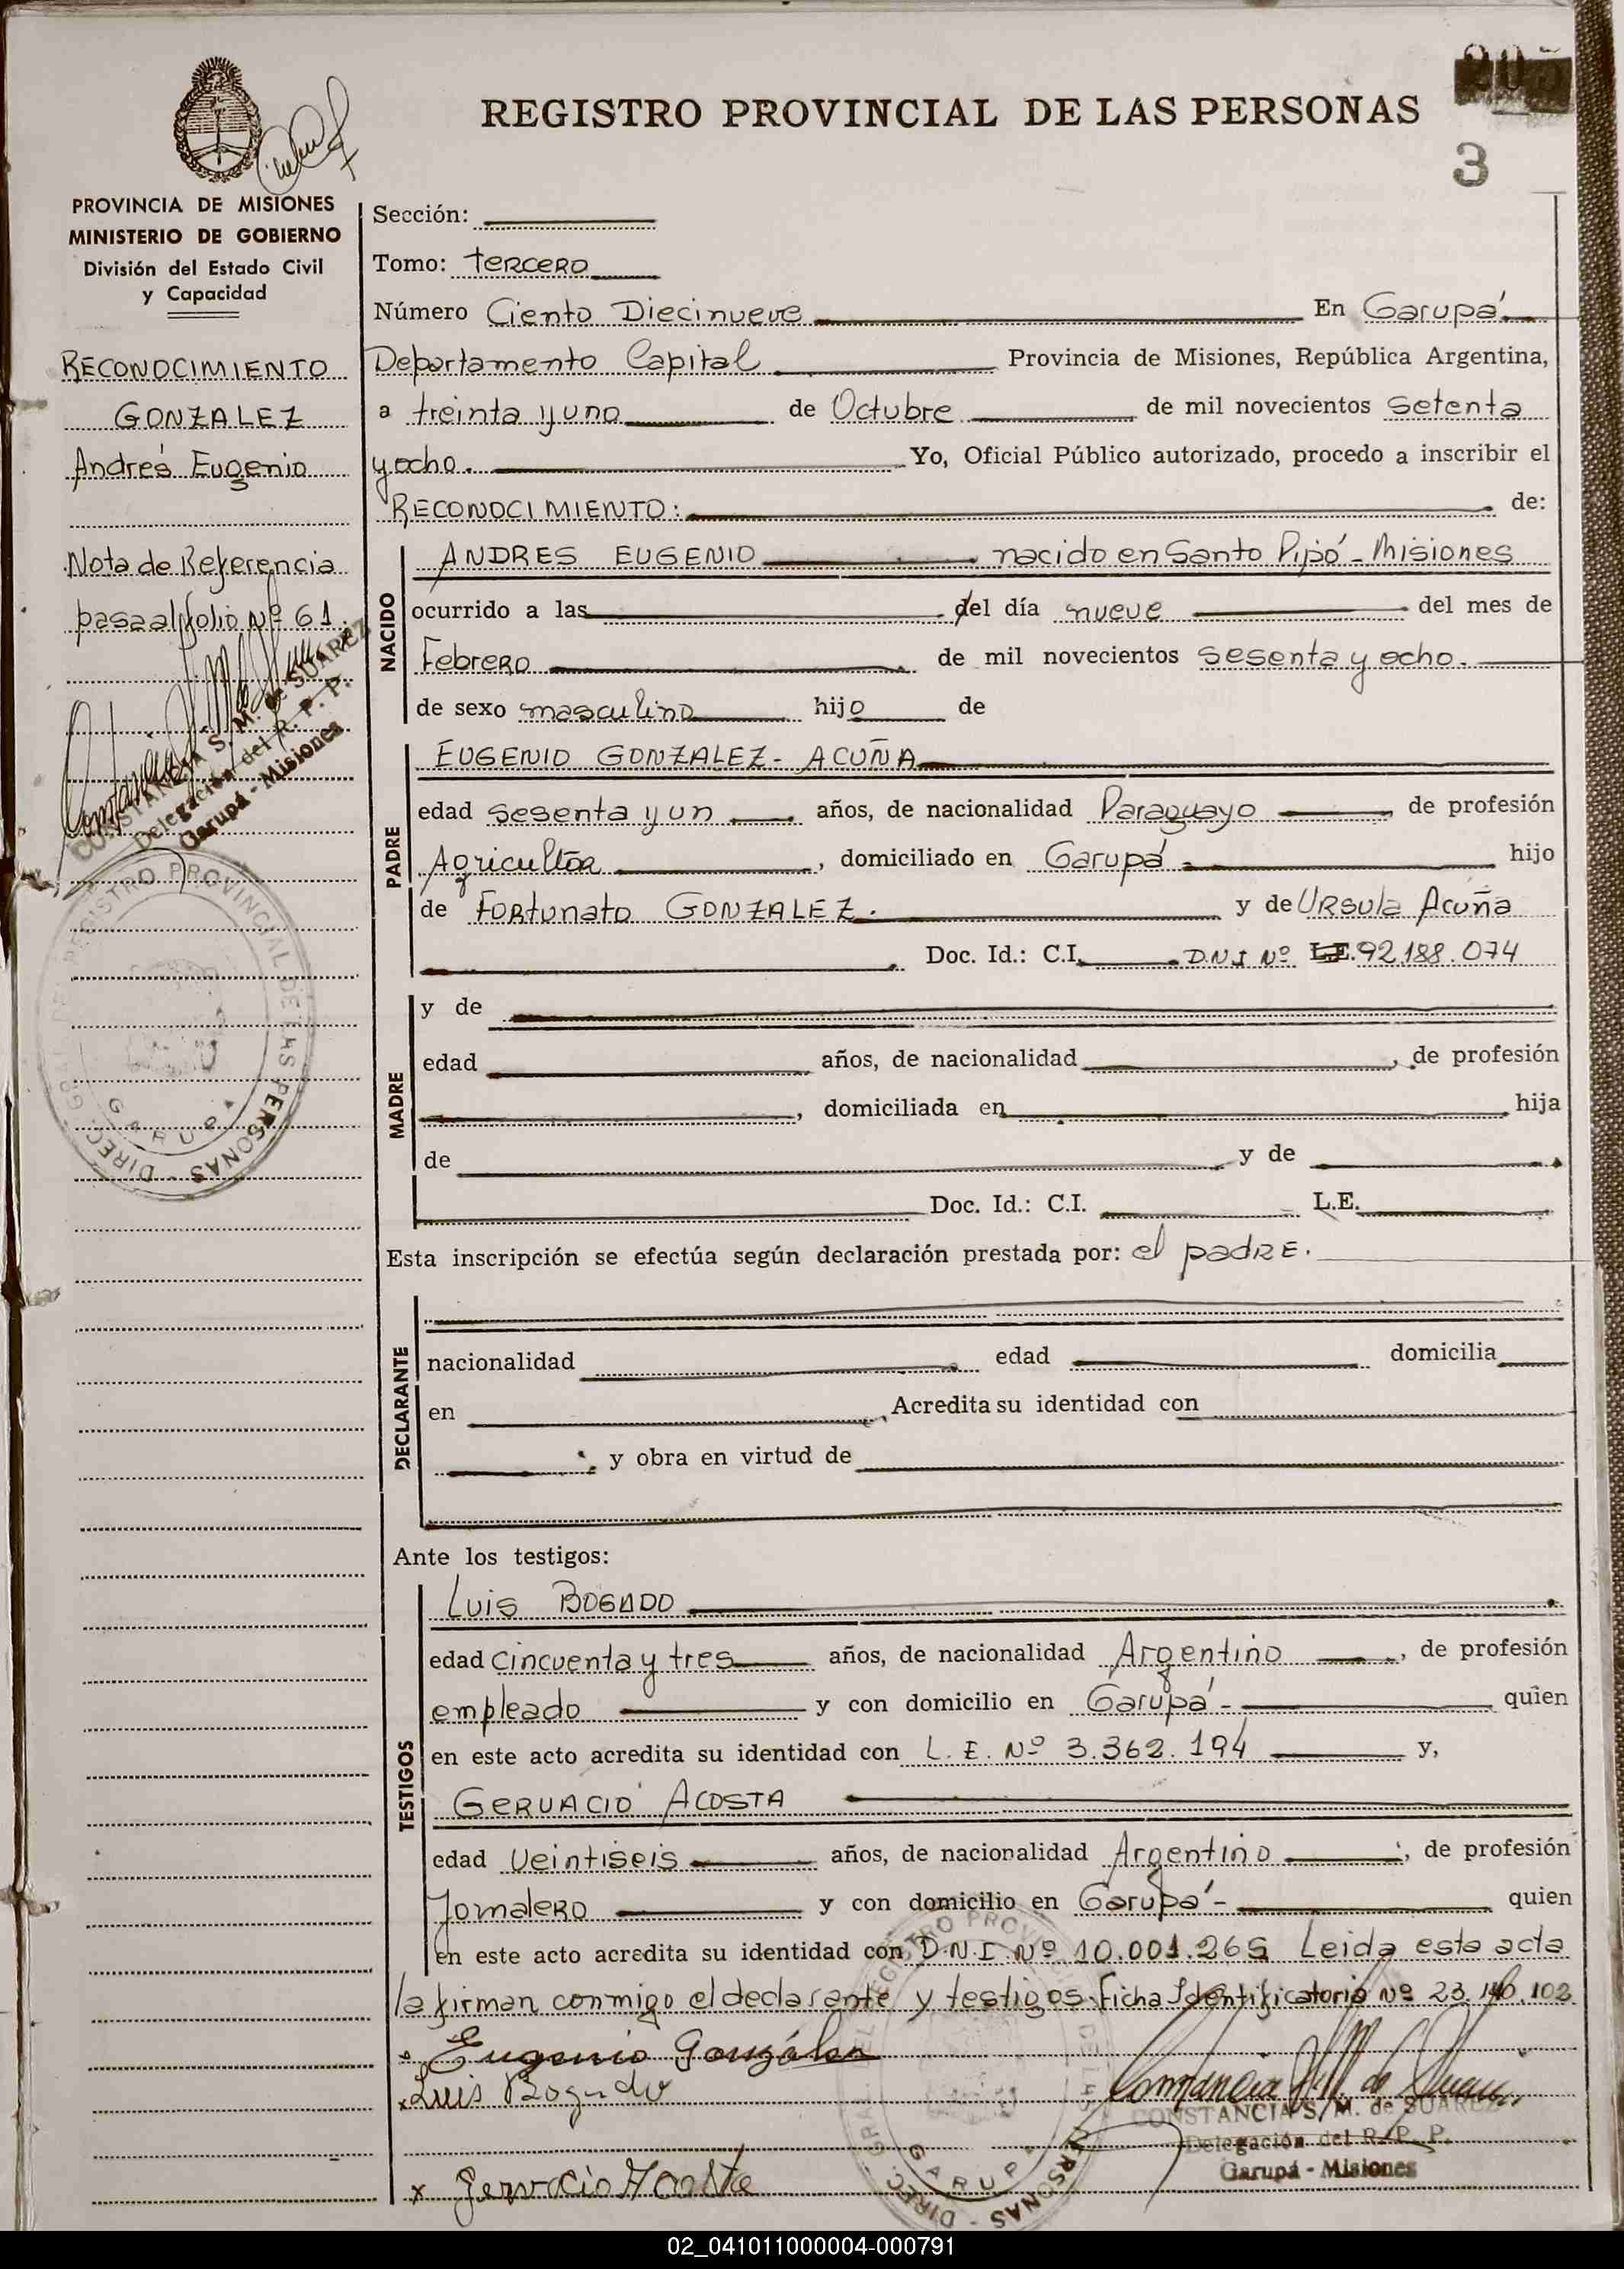 REGISTRO PROVINCIAL DE LAS PERSONAS
3
PROVINCIA DE MISIONES
MINISTERIO DE GOBIERNO
División del Estado Civil
y Capacidad
RECONOCIMIENTO
GONZALEZ
Andrés Eugenio
Nota de Referencia
pasa al folio Nº 61.
CONSTANCIA S. M. de SUAREZ
Delegación del R. P. P.
Garupá - Misiones
REGISTRO PROVINCIAL DE LAS PERSONAS - DIREC. GRAL. DEL
GARUPA
Sección:
Tomo: tercero
Número Ciento Diecinueve En Garupá.
Departamento Capital Provincia de Misiones, República Argentina,
a treinta y uno de Octubre de mil novecientos setenta
y ocho. Yo, Oficial Público autorizado, procedo a inscribir el
RECONOCIMIENTO: de:
NACIDO
ANDRES EUGENIO nacido en Santo Pipó - Misiones
ocurrido a las del día nueve del mes de
Febrero de mil novecientos sesenta y ocho.
de sexo masculino hijo de
PADRE
EUGENIO GONZALEZ - ACUÑA
edad sesenta y un años, de nacionalidad Paraguayo de profesión
Agricultor, domiciliado en Garupá - hijo
de Fortunato GONZALEZ. y de Ursula Acuña
Doc. Id.: C.I. D.N.I Nº L.E. 92.188.074
MADRE
y de
edad años, de nacionalidad, de profesión
, domiciliada en hija
de y de
Doc. Id.: C.I. L.E.
Esta inscripción se efectúa según declaración prestada por: el padre.
DECLARANTE
nacionalidad edad domicilia
en Acredita su identidad con
, y obra en virtud de
Ante los testigos:
TESTIGOS
Luis BOGADO
edad cincuenta y tres años, de nacionalidad Argentino, de profesión
empleado y con domicilio en Garupá - quien
en este acto acredita su identidad con L. E. Nº 3.362.194 y,
GERVACIO ACOSTA
edad Veintiseis años, de nacionalidad Argentino, de profesión
Jornalero y con domicilio en Garupá - quien
en este acto acredita su identidad con D.N.I. Nº 10.001.265 Leida esta acta
la firman conmigo el declarante y testigos. Ficha Identificatoria Nº 23.146.102
Eugenio González
x Luis Bogado
CONSTANCIA S. M. de SUAREZ
Delegación del R. P. P.
Garupá - Misiones
x Gervacio Acosta
02_041011000004-000791